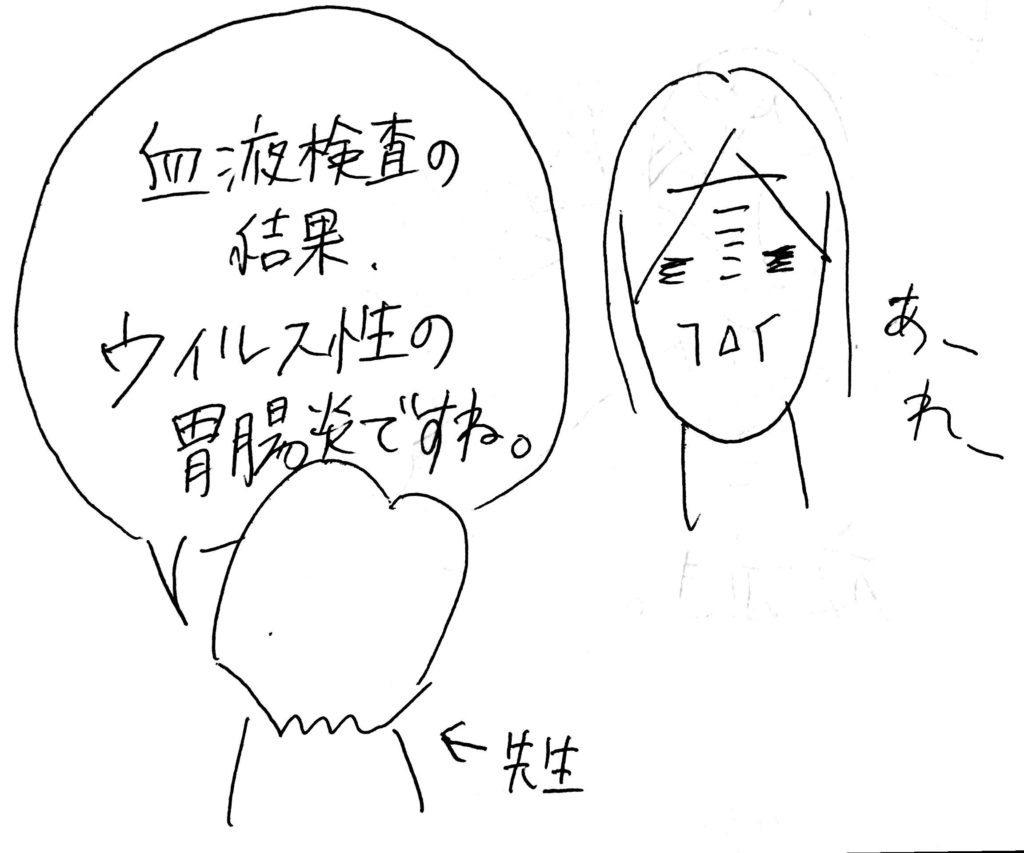 血液検査の
結果.
ウイルス性の
胃腸炎ですね。
あ〜
れ〜
←先生